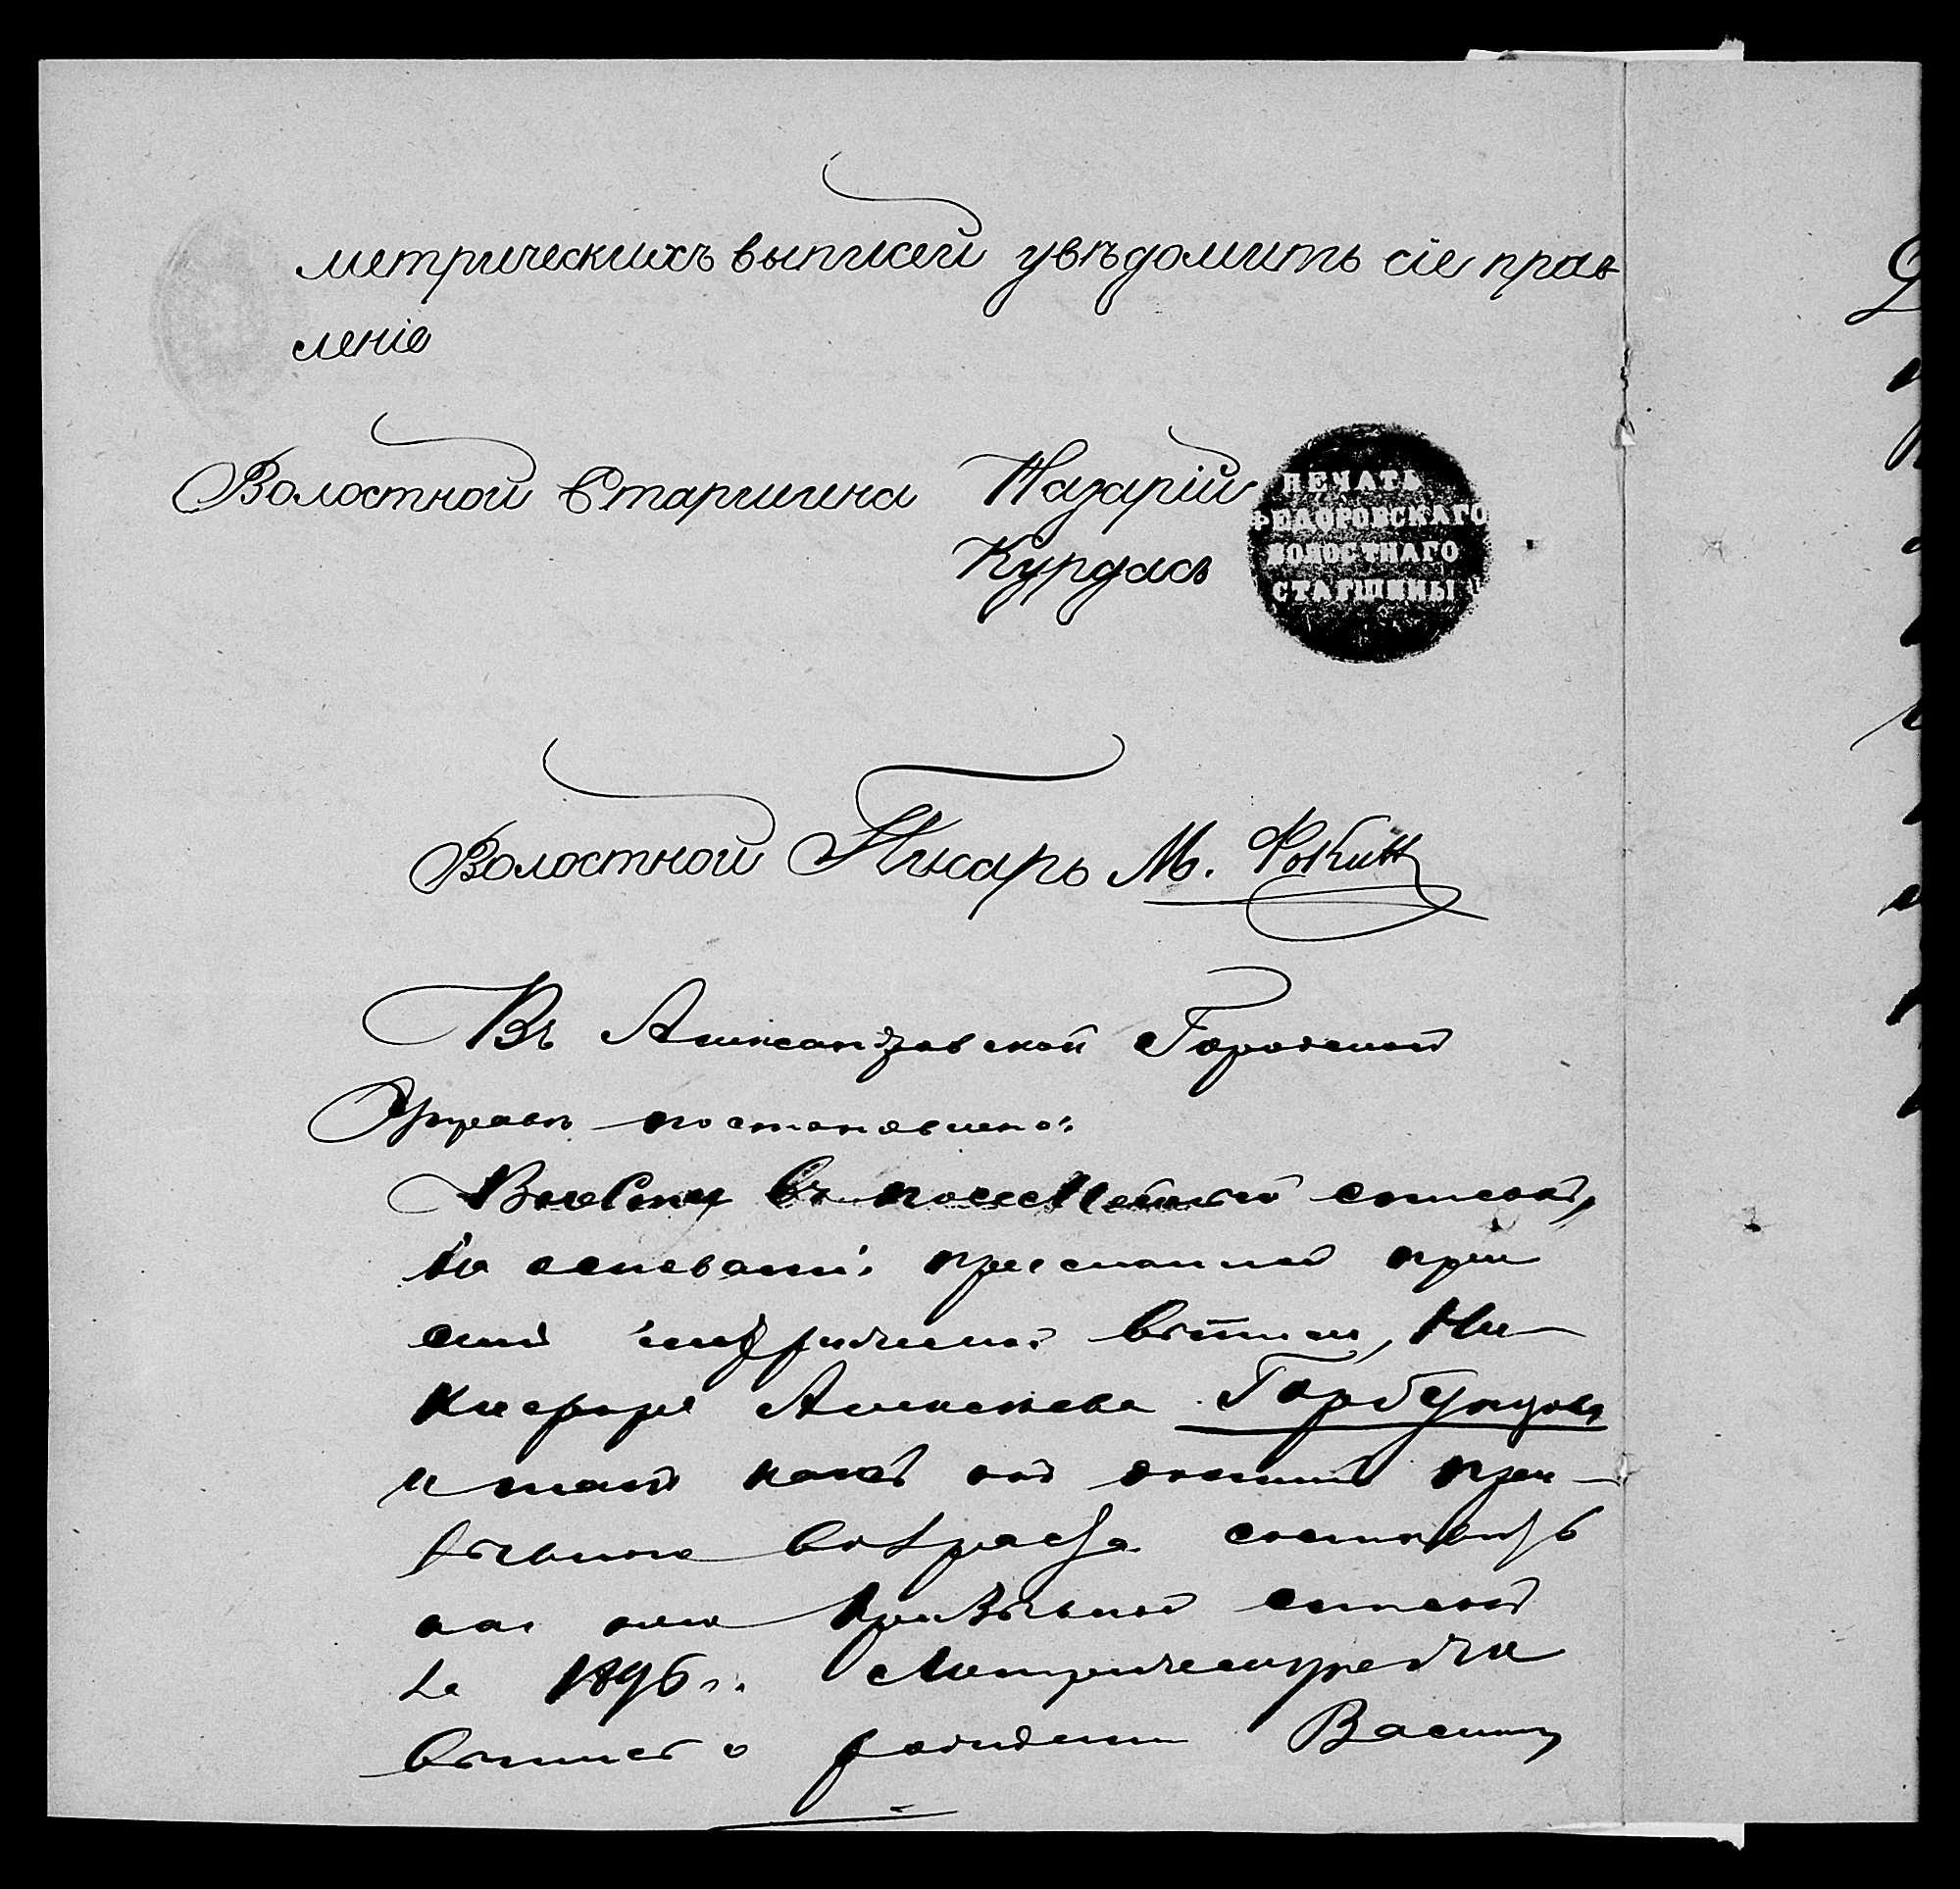 метрическихъ выписей увѣдомить сіе прав
леніе
Волостной Старшина Назарій
Курдасъ
ПЕЧАТЬ
ФЕДОРОВСКАГО
ВОЛОСТНАГО
СТАРШИНЫ
Волостной Писарь М. Фокин
Въ Александровской Городской
Управѣ постановлено:
Внести въ посемейный списокъ,
на основаніи присланной при
сей метрической выписи, Ни-
кифора Алексеева Горбунцова
и такъ какъ онъ достигъ при-
зывнаго возраста составить
на него призывной списокъ
за 1896 г. Метрическую
выпись о рожденіи